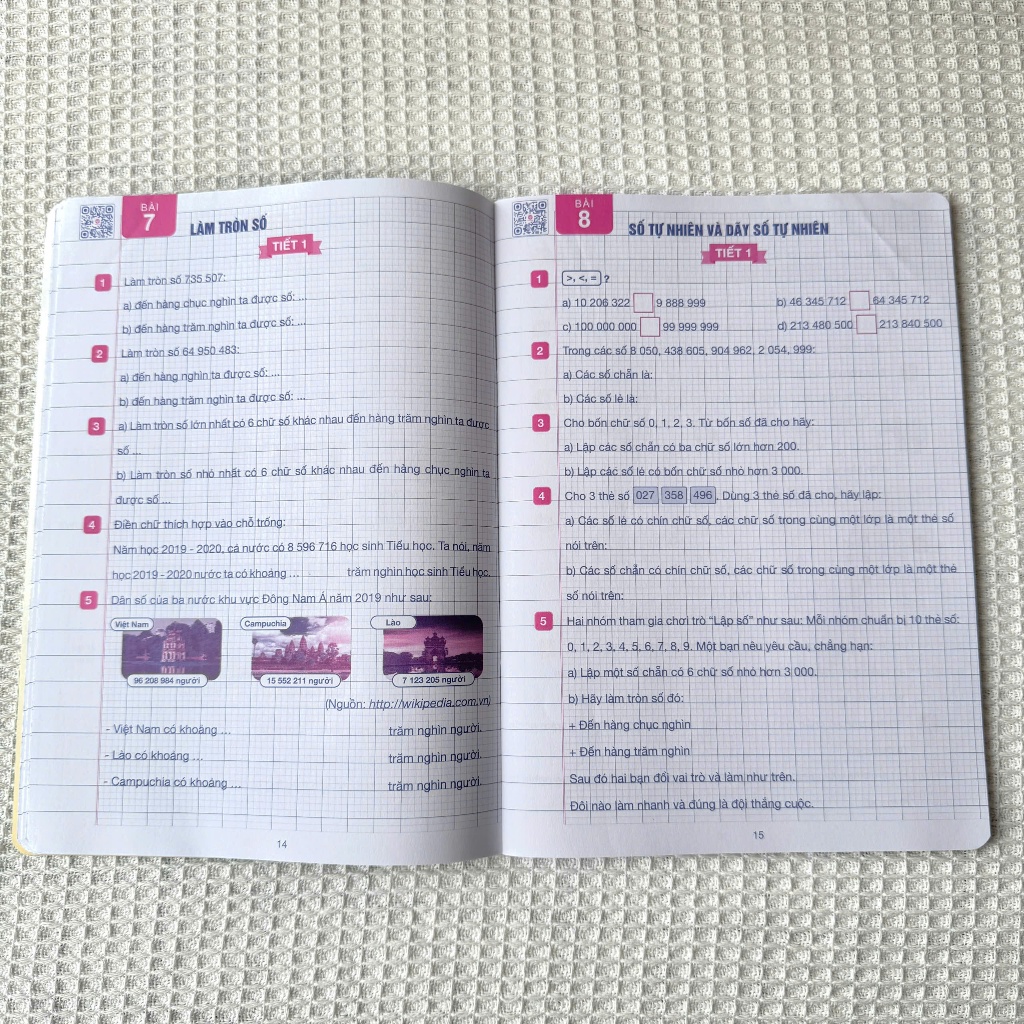 BÀI
7
LÀM TRÒN SỐ
TIẾT 1
1 Làm tròn số 735 507:
a) đến hàng chục nghìn ta được số: ...
b) đến hàng trăm nghìn ta được số: ...
2 Làm tròn số 64 950 483:
a) đến hàng nghìn ta được số: ...
b) đến hàng trăm nghìn ta được số: ...
3 a) Làm tròn số lớn nhất có 6 chữ số khác nhau đến hàng trăm nghìn ta được
số ...
b) Làm tròn số nhỏ nhất có 6 chữ số khác nhau đến hàng chục nghìn ta
được số ...
4 Điền chữ thích hợp vào chỗ trống:
Năm học 2019 - 2020, cả nước có 8 596 716 học sinh Tiểu học. Ta nói, năm
học 2019 - 2020 nước ta có khoảng ... trăm nghìn học sinh Tiểu học.
5 Dân số của ba nước khu vực Đông Nam Á năm 2019 như sau:
Việt Nam Campuchia Lào
96 208 984 người 15 552 211 người 7 123 205 người
(Nguồn: http://wikipedia.com.vn)
- Việt Nam có khoảng ... trăm nghìn người.
- Lào có khoảng ... trăm nghìn người.
- Campuchia có khoảng ... trăm nghìn người.
14
BÀI
8
SỐ TỰ NHIÊN VÀ DÃY SỐ TỰ NHIÊN
TIẾT 1
1 >, <, = ?
a) 10 206 322 9 888 999 b) 46 345 712 64 345 712
c) 100 000 000 99 999 999 d) 213 480 500 213 840 500
2 Trong các số 8 050, 438 605, 904 962, 2 054, 999:
a) Các số chẵn là:
b) Các số lẻ là:
3 Cho bốn chữ số 0, 1, 2, 3. Từ bốn số đã cho hãy:
a) Lập các số chẵn có ba chữ số lớn hơn 200.
b) Lập các số lẻ có bốn chữ số nhỏ hơn 3 000.
4 Cho 3 thẻ số 027 358 496. Dùng 3 thẻ số đã cho, hãy lập:
a) Các số lẻ có chín chữ số, các chữ số trong cùng một lớp là một thẻ số
nói trên:
b) Các số chẵn có chín chữ số, các chữ số trong cùng một lớp là một thẻ
số nói trên:
5 Hai nhóm tham gia chơi trò "Lập số" như sau: Mỗi nhóm chuẩn bị 10 thẻ số:
0, 1, 2, 3, 4, 5, 6, 7, 8, 9. Một bạn nêu yêu cầu, chẳng hạn:
a) Lập một số chẵn có 6 chữ số nhỏ hơn 3 000.
b) Hãy làm tròn số đó:
+ Đến hàng chục nghìn
+ Đến hàng trăm nghìn
Sau đó hai bạn đổi vai trò và làm như trên.
Đội nào làm nhanh và đúng là đội thắng cuộc.
15